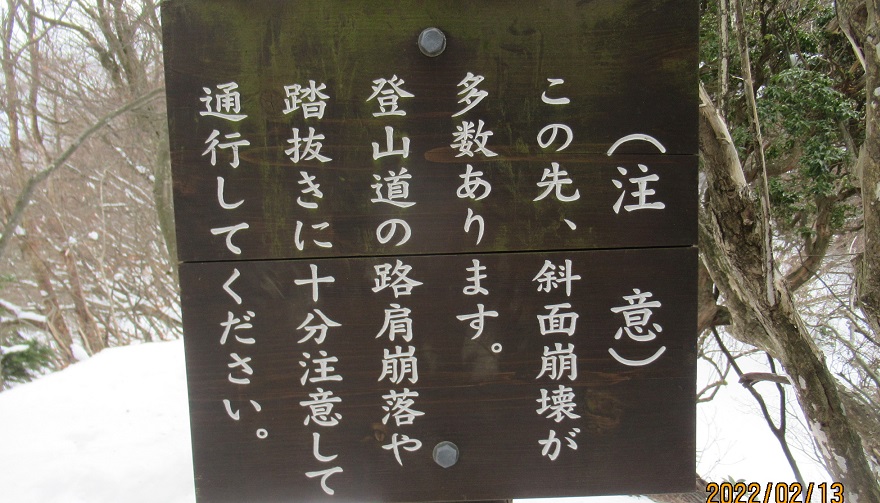 （注意）
この先、斜面崩壊が
多数あります。
登山道の路肩崩落や
踏抜きに十分注意して
通行してください。
2022/02/13